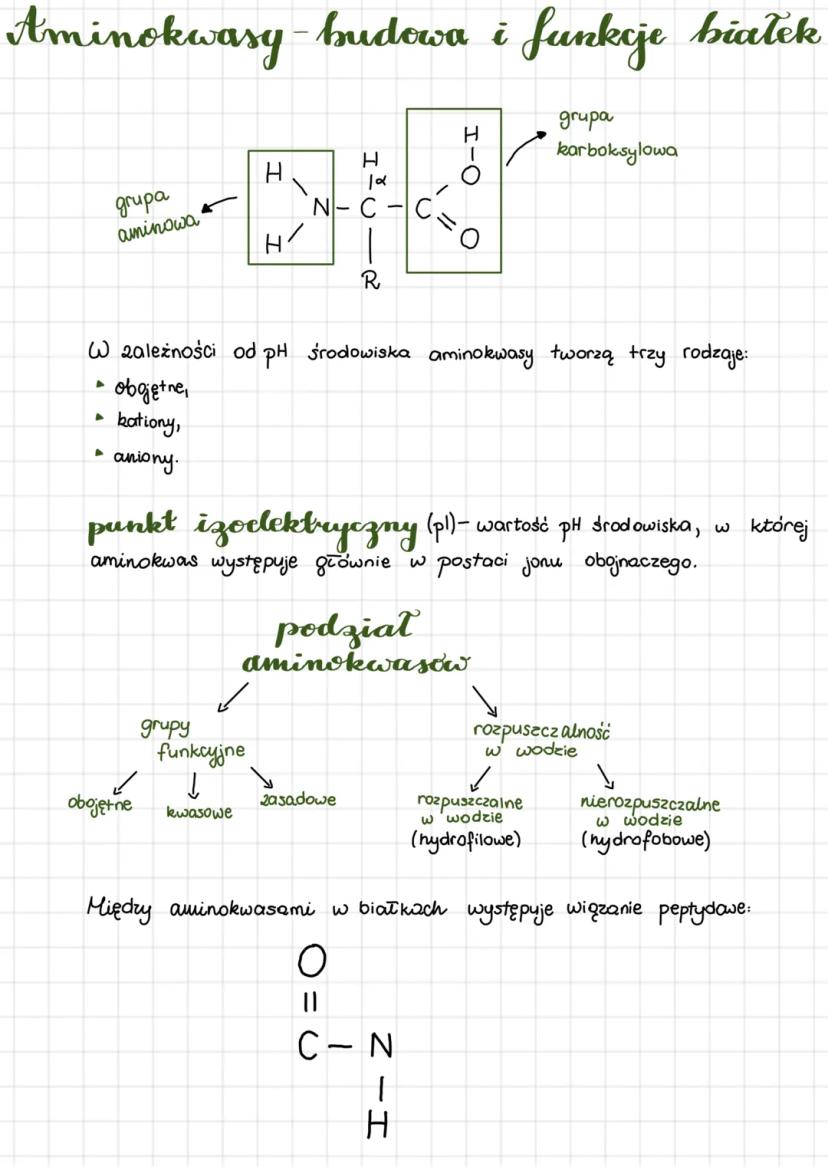 Aminokwasy - budowa i funkcje białek
grupa
karboksylowa
grupa
aminowa
H
H
N - C - C
H
α
R
H
O
O
W zależności od pH środowiska aminokwasy tworzą trzy rodzaje:
obojętne,
kationy,
aniony.
punkt izoelektryczny (pI) - wartość pH środowiska, w której
aminokwas występuje głównie w postaci jonu obojnaczego.
podział
aminokwasów
grupy
funkcyjne
rozpuszczalność
w wodzie
obojętne
kwasowe
zasadowe
rozpuszczalne
w wodzie
(hydrofilowe)
nierozpuszczalne
w wodzie
(hydrofobowe)
Między aminokwasami w białkach występuje wiązanie peptydowe:
O
C - N
H